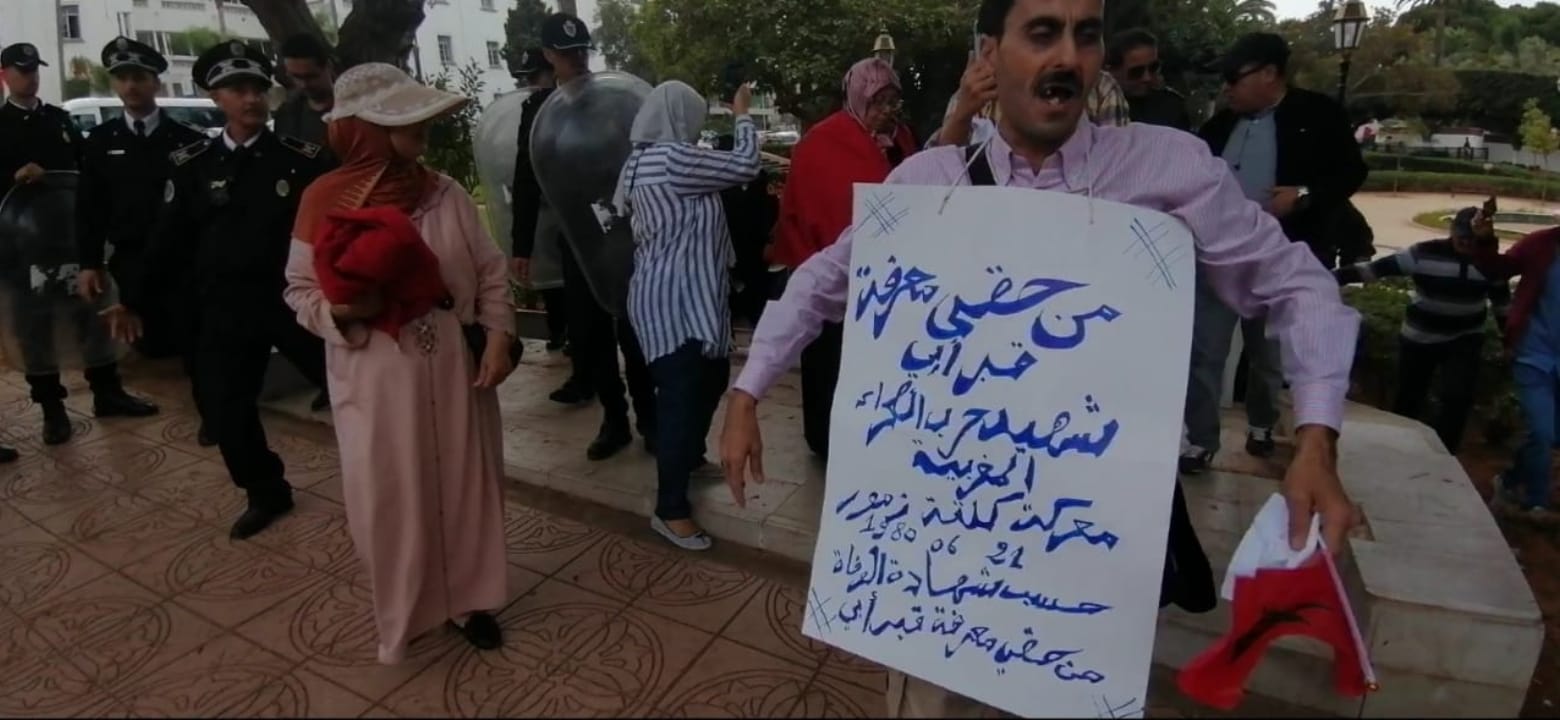 من حقي معرفة
قبر أبي
شهيد حرب الصحراء
المغربية
معركة كلتة زمور
21 06 1980
حسب شهادة الوفاة
من حقي معرفة قبر أبي